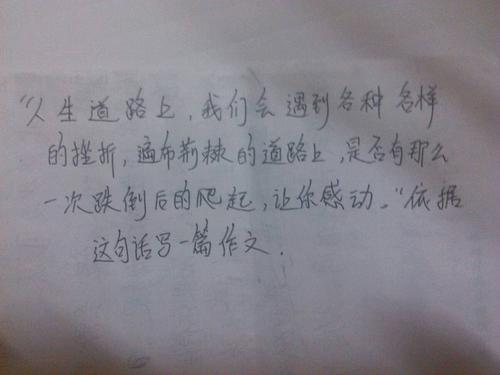 “人生道路上，我们会遇到各种各样
的挫折，遍布荆棘的道路上，是否有那么
一次跌倒后的爬起，让你感动。“依据
这句话写一篇作文.